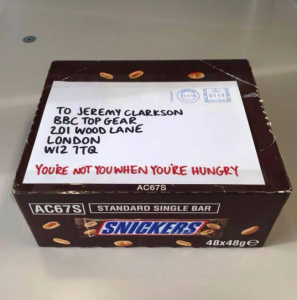 TO JEREMY CLARKSON
BBC TOP GEAR
201 WOOD LANE
LONDON
W12 7TQ
YOU'RE NOT YOU WHEN YOU'RE HUNGRY
AC67S
AC67S STANDARD SINGLE BAR
SNICKERS
48x48g℮